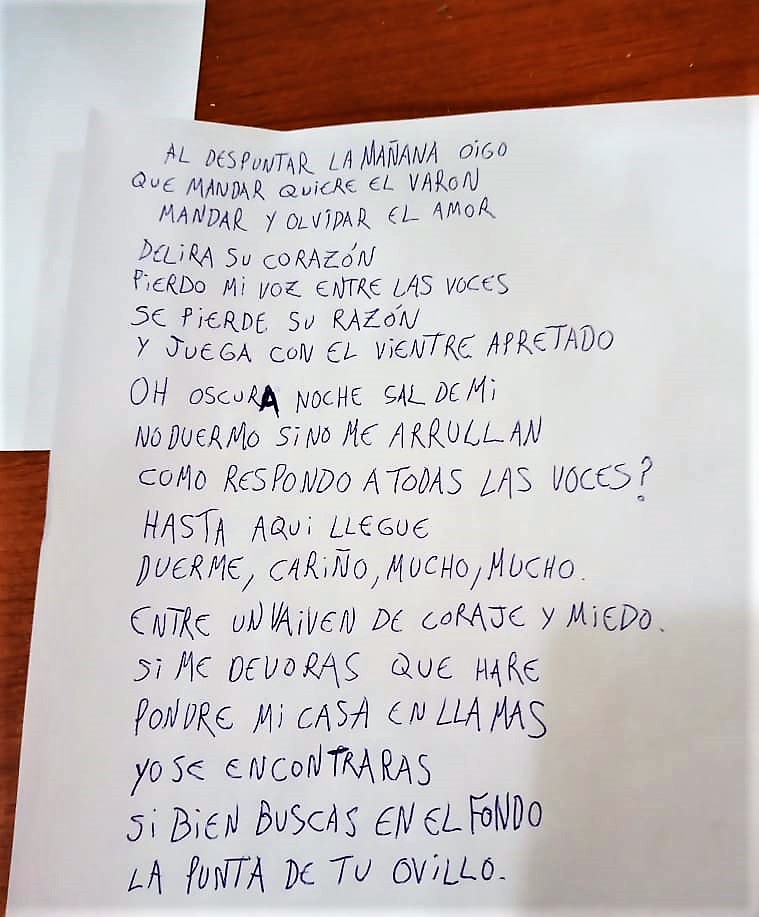 AL DESPUNTAR LA MAÑANA OIGO
QUE MANDAR QUIERE EL VARON
MANDAR Y OLVIDAR EL AMOR
DELIRA SU CORAZÓN
PIERDO MI VOZ ENTRE LAS VOCES
SE PIERDE SU RAZÓN
Y JUEGA CON EL VIENTRE APRETADO
OH OSCURA NOCHE SAL DE MI
NO DUERMO SI NO ME ARRULLAN
COMO RESPONDO A TODAS LAS VOCES?
HASTA AQUI LLEGUE
DUERME, CARIÑO, MUCHO, MUCHO.
ENTRE UN VAIVEN DE CORAJE Y MIEDO.
SI ME DEVORAS QUE HARE
PONDRE MI CASA EN LLAMAS
YO SE ENCONTRARAS
SI BIEN BUSCAS EN EL FONDO
LA PUNTA DE TU OVILLO.